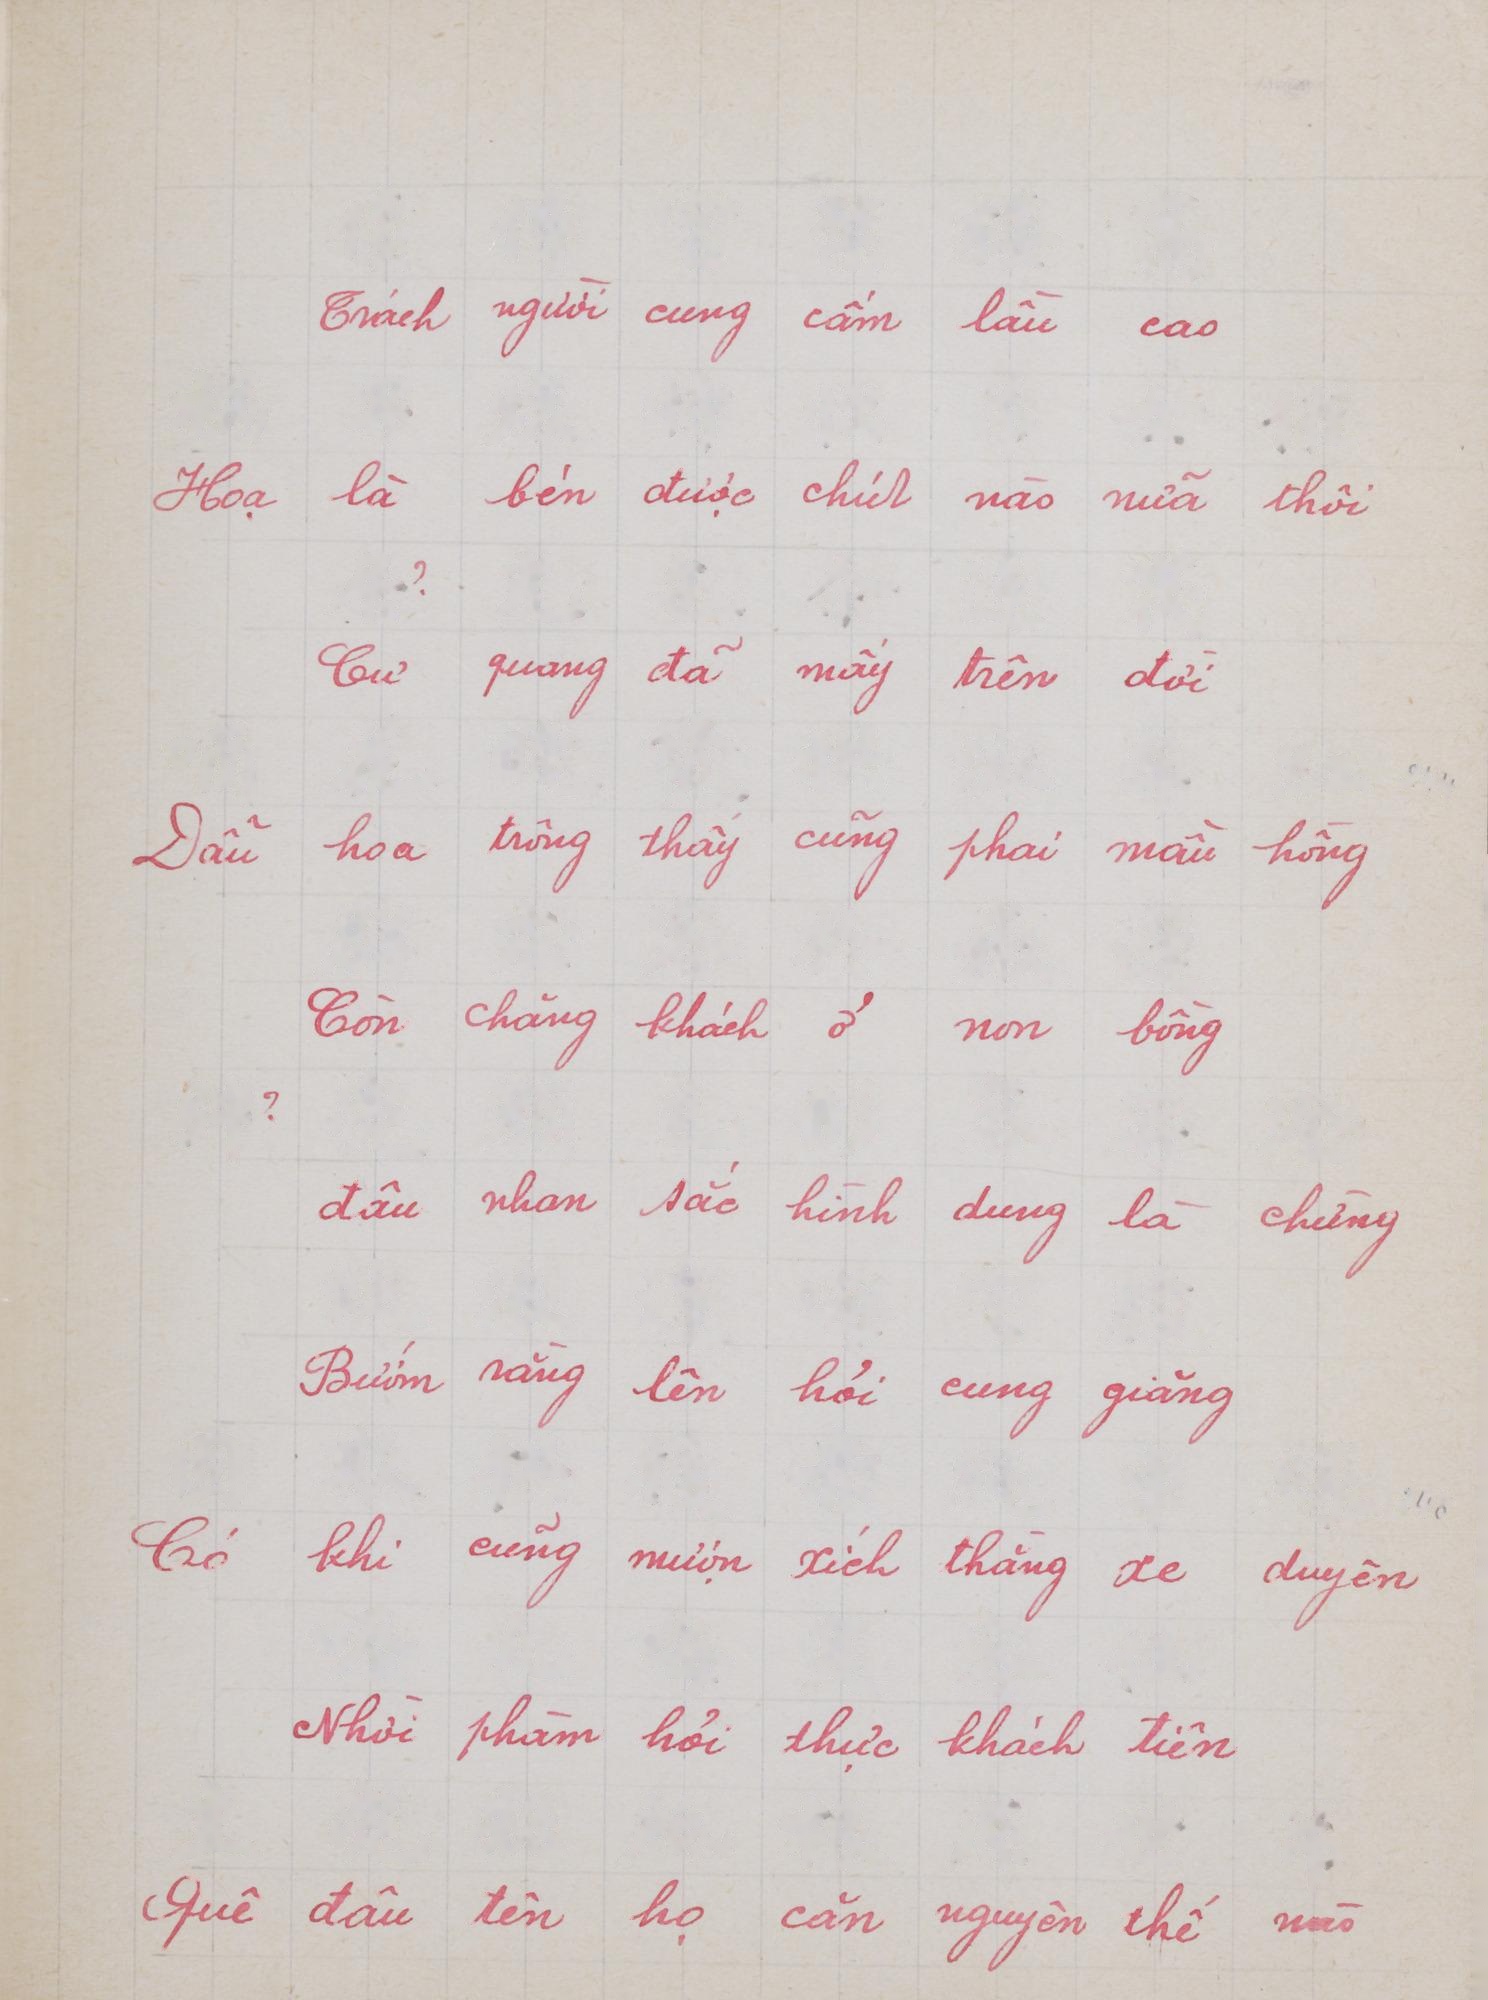 Trách người cung cấm lầu cao
Hoạ là bén được chút nào nữa thôi
?
Cư quang đã mấy trên đời
Dẫu hoa trông thấy cũng phai mầu hồng
Còn chăng khách ở non bồng
?
đâu nhan sắc hình dung là chừng
Bướm rằng lên hỏi cung giăng
Có khi cũng mượn xích thằng xe duyên
Nhời phàm hỏi thực khách tiên
Quê đâu tên họ căn nguyên thế nào